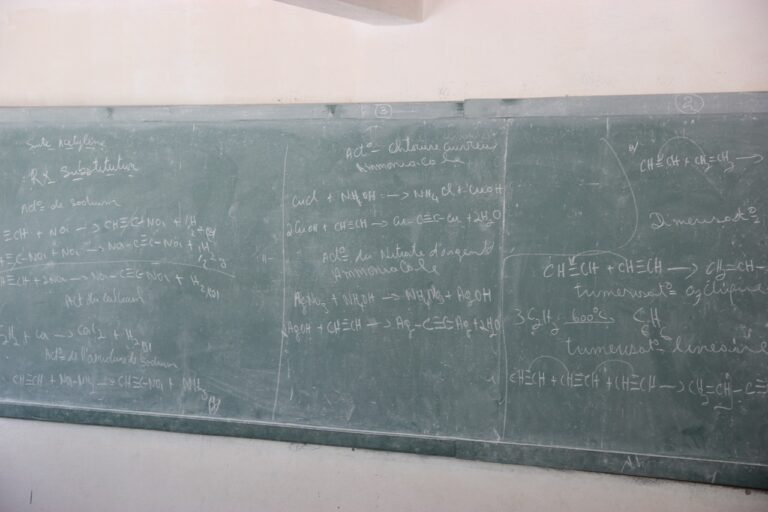 Suite Acétylène
Rx Substitution
Act° de sodium
≡CH + Na → CH≡C-Na + ½H₂
≡C-Na + Na → Na-C≡C-Na + ½H₂
≡CH + 2Na → Na-C≡C-Na + H₂
Act du calcium
C₂H₂ + Ca → CaC₂ + H₂
Act° de l'amidure de sodium
CH≡CH + Na-NH₂ → CH≡C-Na + NH₃
③
Act° Chlorure cuivreux
Ammoniacale
CuCl + NH₄OH → NH₄Cl + CuOH
2CuOH + CH≡CH → Cu-C≡C-Cu + 2H₂O
Act° du Nitrate d'argent
Ammoniacale
AgNO₃ + NH₄OH → NH₄NO₃ + AgOH
AgOH + CH≡CH → Ag-C≡C-Ag + 2H₂O
②
CH≡CH + CH₂=CH₂ →
Dimerisat°
CH≡CH + CH≡CH → CH₂=CH-
trimerisat° cyclique
3C₂H₂ 600°C C₆H₆
trimerisat° lineaire
CH≡CH + CH≡CH + CH≡CH → CH₂=CH-C≡